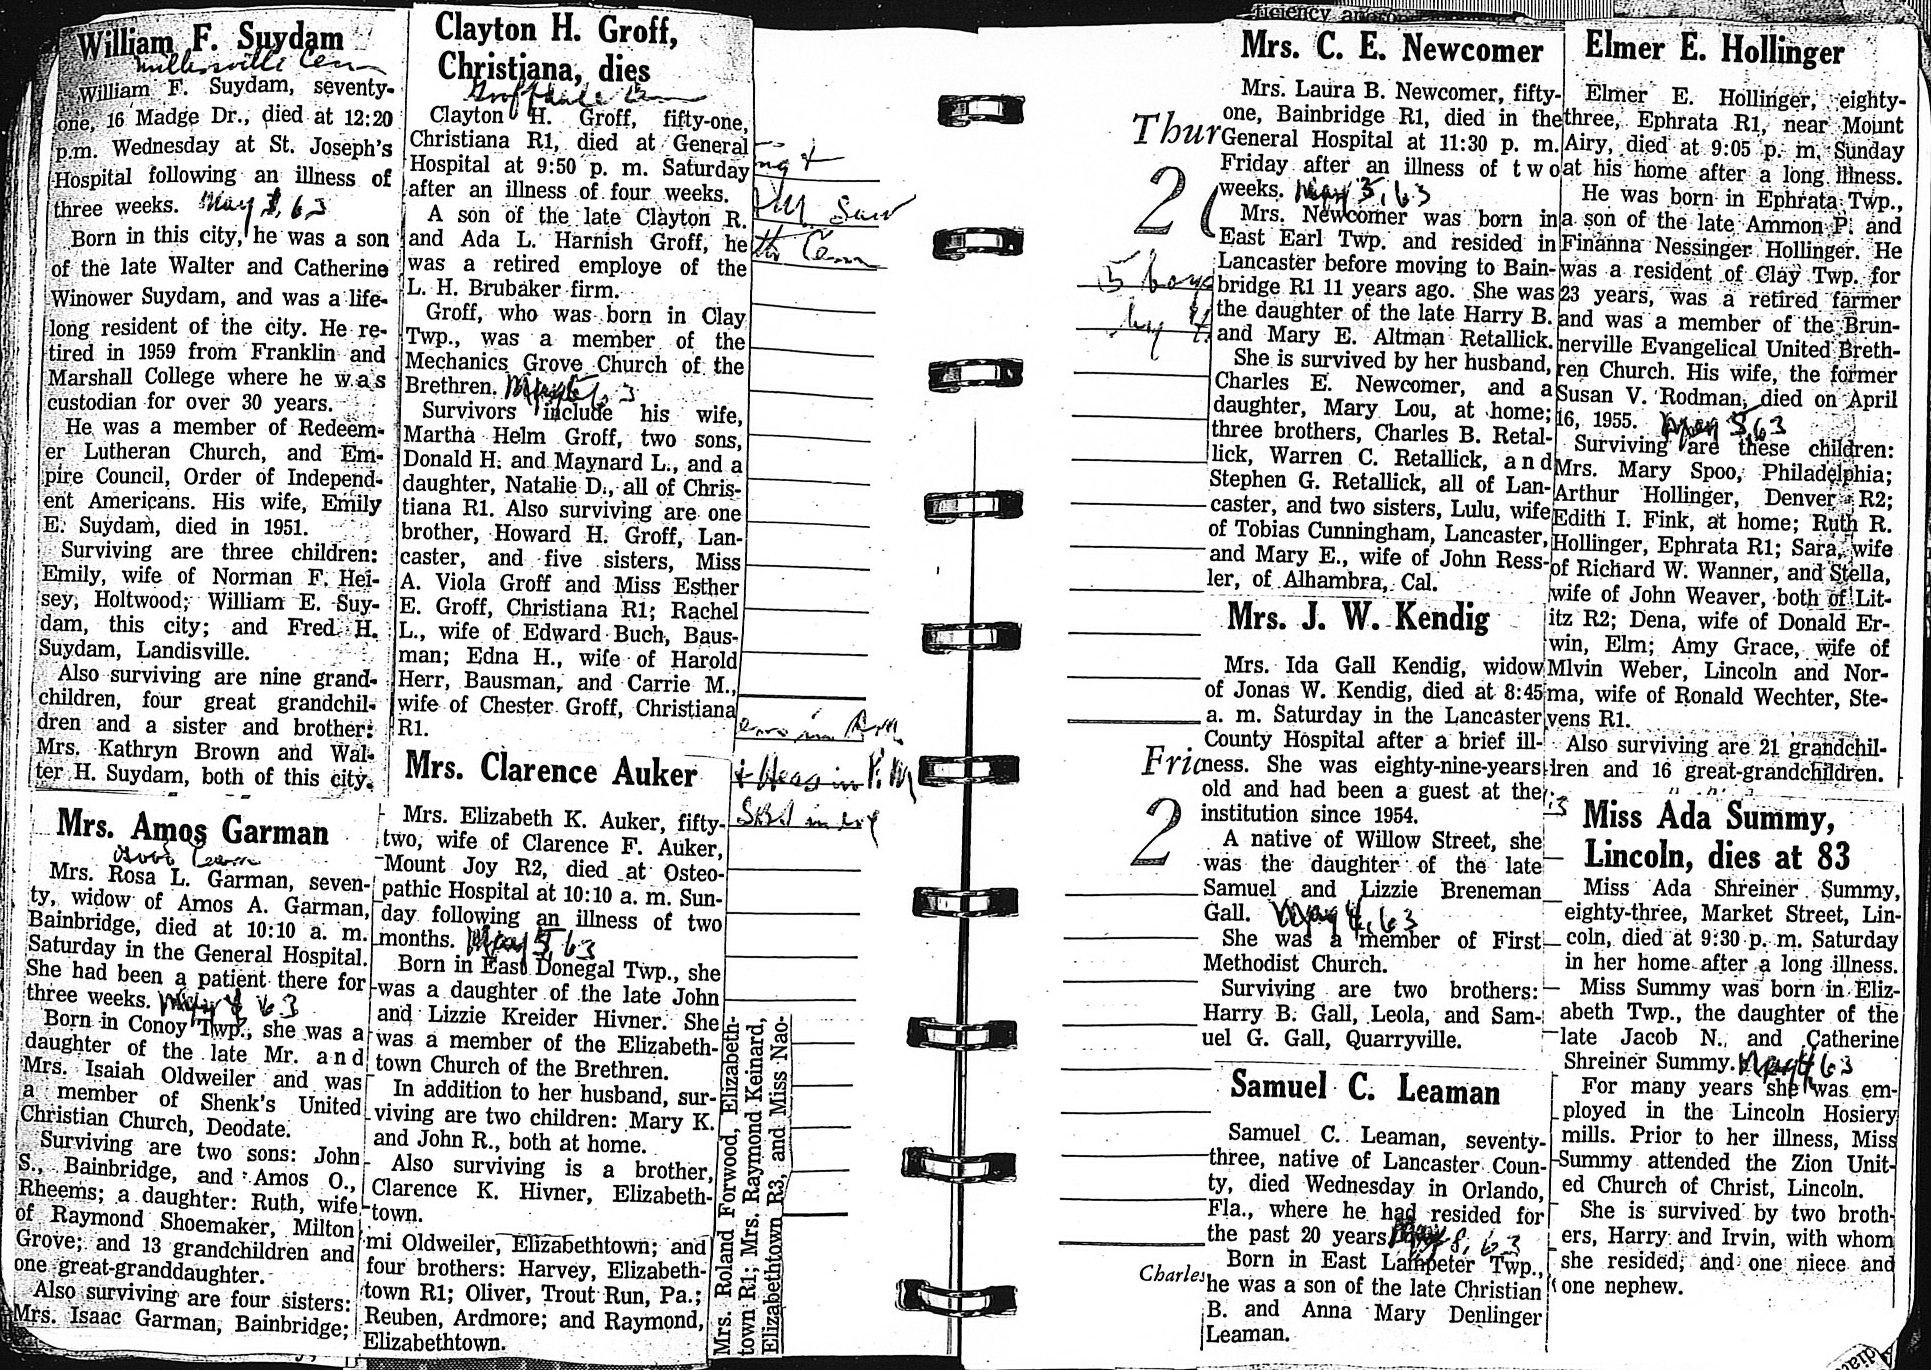 William F. Suydam
Millersville Cem
William F. Suydam, seventy-
one, 16 Madge Dr., died at 12:20
p.m. Wednesday at St. Joseph's
Hospital following an illness of
three weeks. May 8, 63
Born in this city, he was a son
of the late Walter and Catherine
Winower Suydam, and was a life-
long resident of the city. He re-
tired in 1959 from Franklin and
Marshall College where he was
custodian for over 30 years.
He was a member of Redeem-
er Lutheran Church, and Em-
pire Council, Order of Independ-
ent Americans. His wife, Emily
E. Suydam, died in 1951.
Surviving are three children:
Emily, wife of Norman F. Hei-
sey, Holtwood; William E. Suy-
dam, this city; and Fred H.
Suydam, Landisville.
Also surviving are nine grand-
children, four great grandchil-
dren and a sister and brother:
Mrs. Kathryn Brown and Wal-
ter H. Suydam, both of this city.
Mrs. Amos Garman
Good Cem
Mrs. Rosa L. Garman, seven-
ty, widow of Amos A. Garman,
Bainbridge, died at 10:10 a. m.
Saturday in the General Hospital.
She had been a patient there for
three weeks. May 4 63
Born in Conoy Twp., she was a
daughter of the late Mr. and
Mrs. Isaiah Oldweiler and was
a member of Shenk's United
Christian Church, Deodate.
Surviving are two sons: John
S., Bainbridge, and Amos O.,
Rheems; a daughter: Ruth, wife
of Raymond Shoemaker, Milton
Grove; and 13 grandchildren and
one great-granddaughter.
Also surviving are four sisters:
Mrs. Isaac Garman, Bainbridge;
Mrs. Roland Forwood, Elizabeth-
town R1; Mrs. Raymond Keinard,
Elizabethtown R3, and Miss Nao-
mi Oldweiler, Elizabethtown; and
four brothers: Harvey, Elizabeth-
town R1; Oliver, Trout Run, Pa.;
Reuben, Ardmore; and Raymond,
Elizabethtown.
Clayton H. Groff,
Christiana, dies
Groffdale Cem
Clayton H. Groff, fifty-one,
Christiana R1, died at General
Hospital at 9:50 p. m. Saturday
after an illness of four weeks.
A son of the late Clayton R.
and Ada L. Harnish Groff, he
was a retired employe of the
L. H. Brubaker firm.
Groff, who was born in Clay
Twp., was a member of the
Mechanics Grove Church of the
Brethren. 63
Survivors include his wife,
Martha Helm Groff, two sons,
Donald H. and Maynard L., and a
daughter, Natalie D., all of Chris-
tiana R1. Also surviving are one
brother, Howard H. Groff, Lan-
caster, and five sisters, Miss
A. Viola Groff and Miss Esther
E. Groff, Christiana R1; Rachel
L., wife of Edward Buch, Baus-
man; Edna H., wife of Harold
Herr, Bausman, and Carrie M.,
wife of Chester Groff, Christiana
R1.
Mrs. Clarence Auker
Mrs. Elizabeth K. Auker, fifty-
two, wife of Clarence F. Auker,
Mount Joy R2, died at Osteo-
pathic Hospital at 10:10 a. m. Sun-
day following an illness of two
months. May 5, 63
Born in East Donegal Twp., she
was a daughter of the late John
and Lizzie Kreider Hivner. She
was a member of the Elizabeth-
town Church of the Brethren.
In addition to her husband, sur-
viving are two children: Mary K.
and John R., both at home.
Also surviving is a brother,
Clarence K. Hivner, Elizabeth-
town.
Cem
Thur
2
5 boys
by
Fri
2
Charles
Mrs. C. E. Newcomer
Mrs. Laura B. Newcomer, fifty-
one, Bainbridge R1, died in the
General Hospital at 11:30 p. m.
Friday after an illness of two
weeks. May 3, 63
Mrs. Newcomer was born in
East Earl Twp. and resided in
Lancaster before moving to Bain-
bridge R1 11 years ago. She was
the daughter of the late Harry B.
and Mary E. Altman Retallick.
She is survived by her husband,
Charles E. Newcomer, and a
daughter, Mary Lou, at home;
three brothers, Charles B. Retal-
lick, Warren C. Retallick, and
Stephen G. Retallick, all of Lan-
caster, and two sisters, Lulu, wife
of Tobias Cunningham, Lancaster,
and Mary E., wife of John Ress-
ler, of Alhambra, Cal.
Mrs. J. W. Kendig
Mrs. Ida Gall Kendig, widow
of Jonas W. Kendig, died at 8:45
a. m. Saturday in the Lancaster
County Hospital after a brief ill-
ness. She was eighty-nine-years
old and had been a guest at the
institution since 1954.
A native of Willow Street, she
was the daughter of the late
Samuel and Lizzie Breneman
Gall. May 4, 63
She was a member of First
Methodist Church.
Surviving are two brothers:
Harry B. Gall, Leola, and Sam-
uel G. Gall, Quarryville.
Samuel C. Leaman
Samuel C. Leaman, seventy-
three, native of Lancaster Coun-
ty, died Wednesday in Orlando,
Fla., where he had resided for
the past 20 years. May 8, 63
Born in East Lampeter Twp.,
he was a son of the late Christian
B. and Anna Mary Denlinger
Leaman.
Elmer E. Hollinger
Elmer E. Hollinger, eighty-
three, Ephrata R1, near Mount
Airy, died at 9:05 p. m. Sunday
at his home after a long illness.
He was born in Ephrata Twp.,
a son of the late Ammon P. and
Finanna Nessinger Hollinger. He
was a resident of Clay Twp. for
23 years, was a retired farmer
and was a member of the Brun-
nerville Evangelical United Breth-
ren Church. His wife, the former
Susan V. Rodman, died on April
16, 1955. May 5, 63
Surviving are these children:
Mrs. Mary Spoo, Philadelphia;
Arthur Hollinger, Denver R2;
Edith I. Fink, at home; Ruth R.
Hollinger, Ephrata R1; Sara, wife
of Richard W. Wanner, and Stella,
wife of John Weaver, both of Lit-
itz R2; Dena, wife of Donald Er-
win, Elm; Amy Grace, wife of
Mlvin Weber, Lincoln and Nor-
ma, wife of Ronald Wechter, Ste-
vens R1.
Also surviving are 21 grandchil-
dren and 16 great-grandchildren.
Miss Ada Summy,
Lincoln, dies at 83
Miss Ada Shreiner Summy,
eighty-three, Market Street, Lin-
coln, died at 9:30 p. m. Saturday
in her home after a long illness.
Miss Summy was born in Eliz-
abeth Twp., the daughter of the
late Jacob N., and Catherine
Shreiner Summy. May 4 63
For many years she was em-
ployed in the Lincoln Hosiery
mills. Prior to her illness, Miss
Summy attended the Zion Unit-
ed Church of Christ, Lincoln.
She is survived by two broth-
ers, Harry and Irvin, with whom
she resided; and one niece and
one nephew.